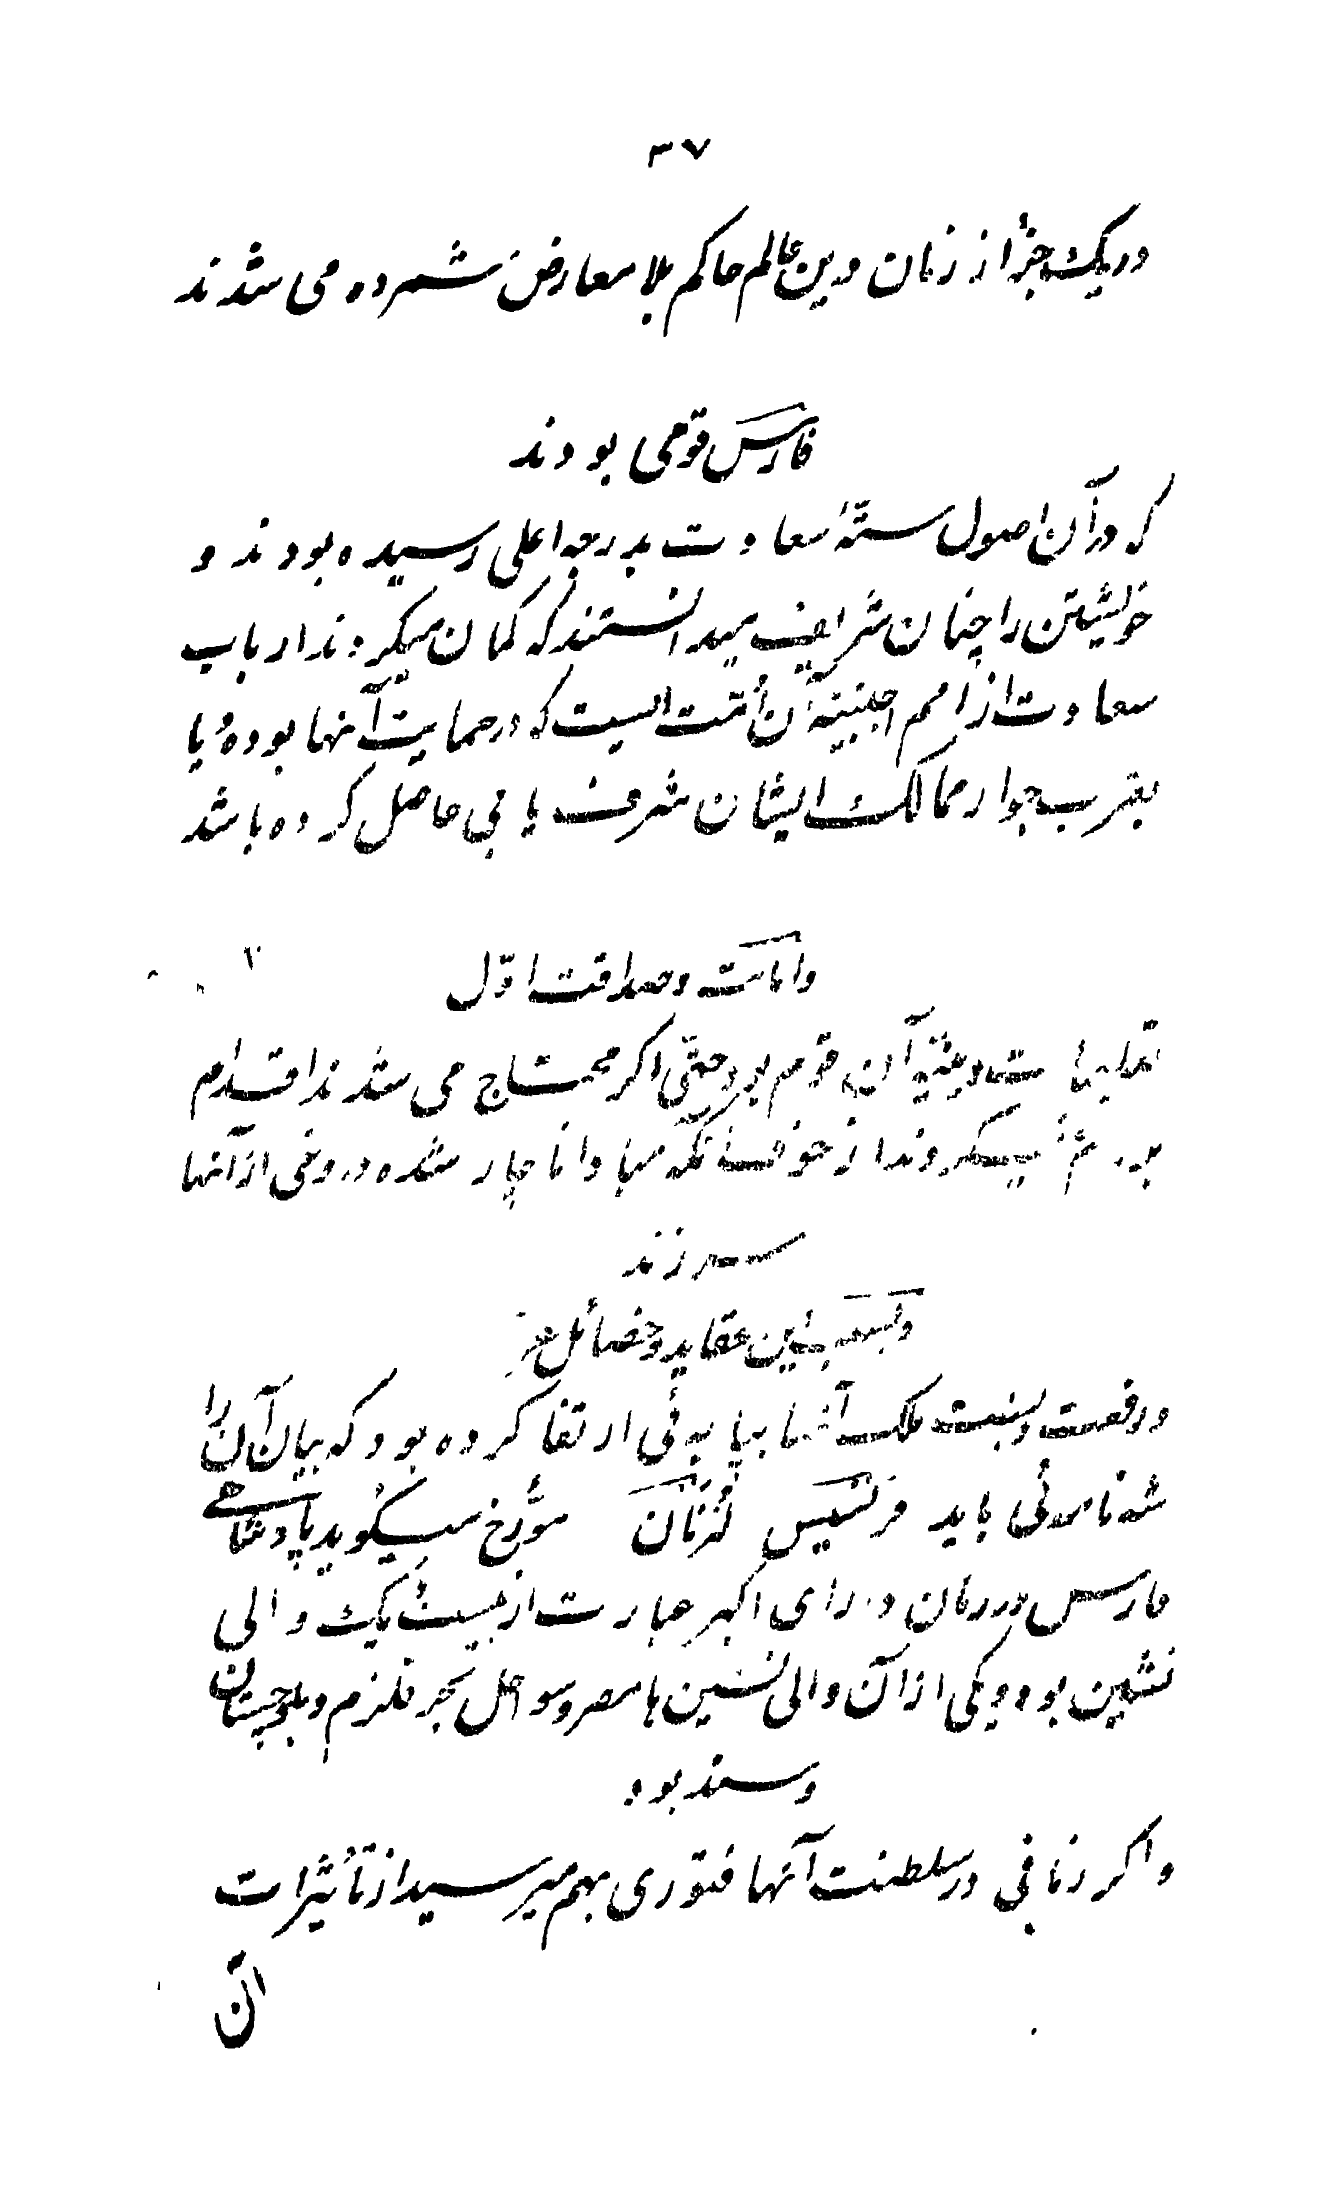 ۳۷
در یک جزٔ از زمان درین عالم حاکم بلا معارض شمرده می شدند
فارس قومی بودند
که در آن اصول ستّهٔ سعادت بدرجه اعلی رسیده بودند و
خویشتن را چنان شریف میدانستند که کمان میکردند ارباب
سعادت از امم اجنبیّه آن اُمّت ایست که در حمایت آنها بوده یا
بقرب جوار ممالک ایشان شرف یابی حاصل کرده باشد
و امانت و صداقت اوّل
تعلیمات دینیّهٔ آن قوم بود حتّی اکر محتاج می شدند اقدام
بر نمیکردند از خوف آنکه مبادا ناچار شده دروغی از آنها
سر زند
و بسبب این عقاید و خصائل عز
و رفعت و بسطت ملک آنها بپایه‌ئی ارتقا کرده بود که بیان آن را
شه نامه‌ئی باید فرنسیس لُنُرمان مورّخ میکوید پادشاهی
فارس در زمان دارای اکبر عبارت از بیست یک والی
نشین بود و یکی از آن والی نشین ها مصر و سواحل بحر قلزم و بلوچستان
و سند بود
و اکر زمانی در سلطنت آنها فتوری بهم میرسید از تأثیرات
آن